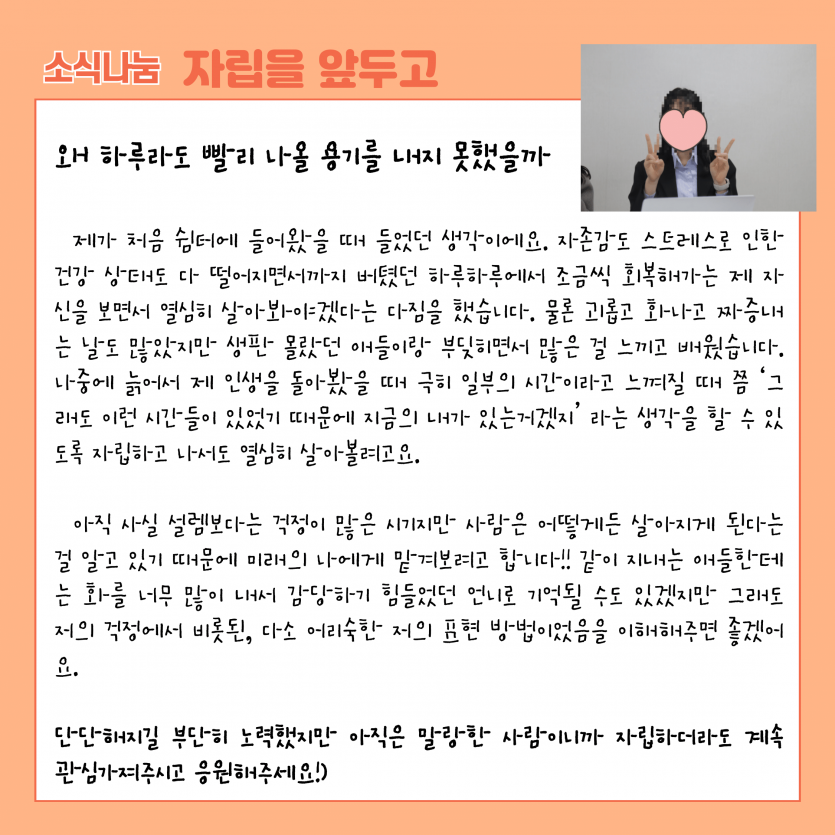 소식나눔 자립을 앞두고
왜 하루라도 빨리 나올 용기를 내지 못했을까
제가 처음 쉼터에 들어왔을 때 들었던 생각이에요. 자존감도 스트레스로 인한
건강 상태도 다 떨어지면서까지 버텼던 하루하루에서 조금씩 회복해가는 제 자
신을 보면서 열심히 살아봐야겠다는 다짐을 했습니다. 물론 괴롭고 화나고 짜증내
는 날도 많았지만 생판 몰랐던 애들이랑 부딪히면서 많은 걸 느끼고 배웠습니다.
나중에 늙어서 제 인생을 돌아봤을 때 극히 일부의 시간이라고 느껴질 때 쯤 ‘그
래도 이런 시간들이 있었기 때문에 지금의 내가 있는거겠지’ 라는 생각을 할 수 있
도록 자립하고 나서도 열심히 살아볼려고요.
아직 사실 설렘보다는 걱정이 많은 시기지만 사람은 어떻게든 살아지게 된다는
걸 알고 있기 때문에 미래의 나에게 맡겨보려고 합니다!! 같이 지내는 애들한테
는 화를 너무 많이 내서 감당하기 힘들었던 언니로 기억될 수도 있겠지만 그래도
저의 걱정에서 비롯된, 다소 어리숙한 저의 표현 방법이었음을 이해해주면 좋겠어
요.
단단해지길 부단히 노력했지만 아직은 말랑한 사람이니까 자립하더라도 계속
관심가져주시고 응원해주세요!)